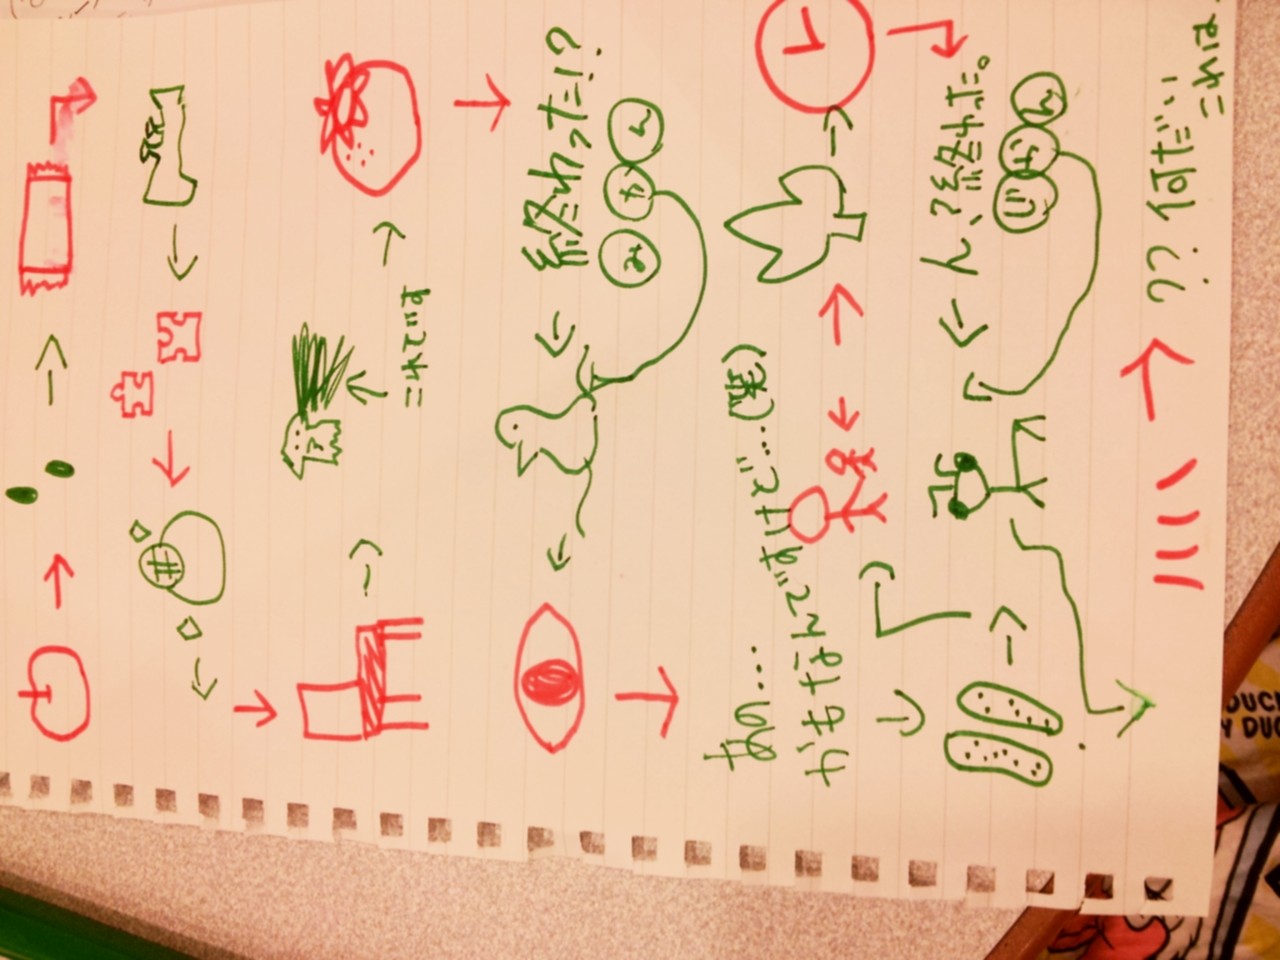 これです
終わった!?
みかん
あの…
かもなんですけど…(笑)
ん、?終わった。
じかん
??何だい
これは.
DUC
Y DUC